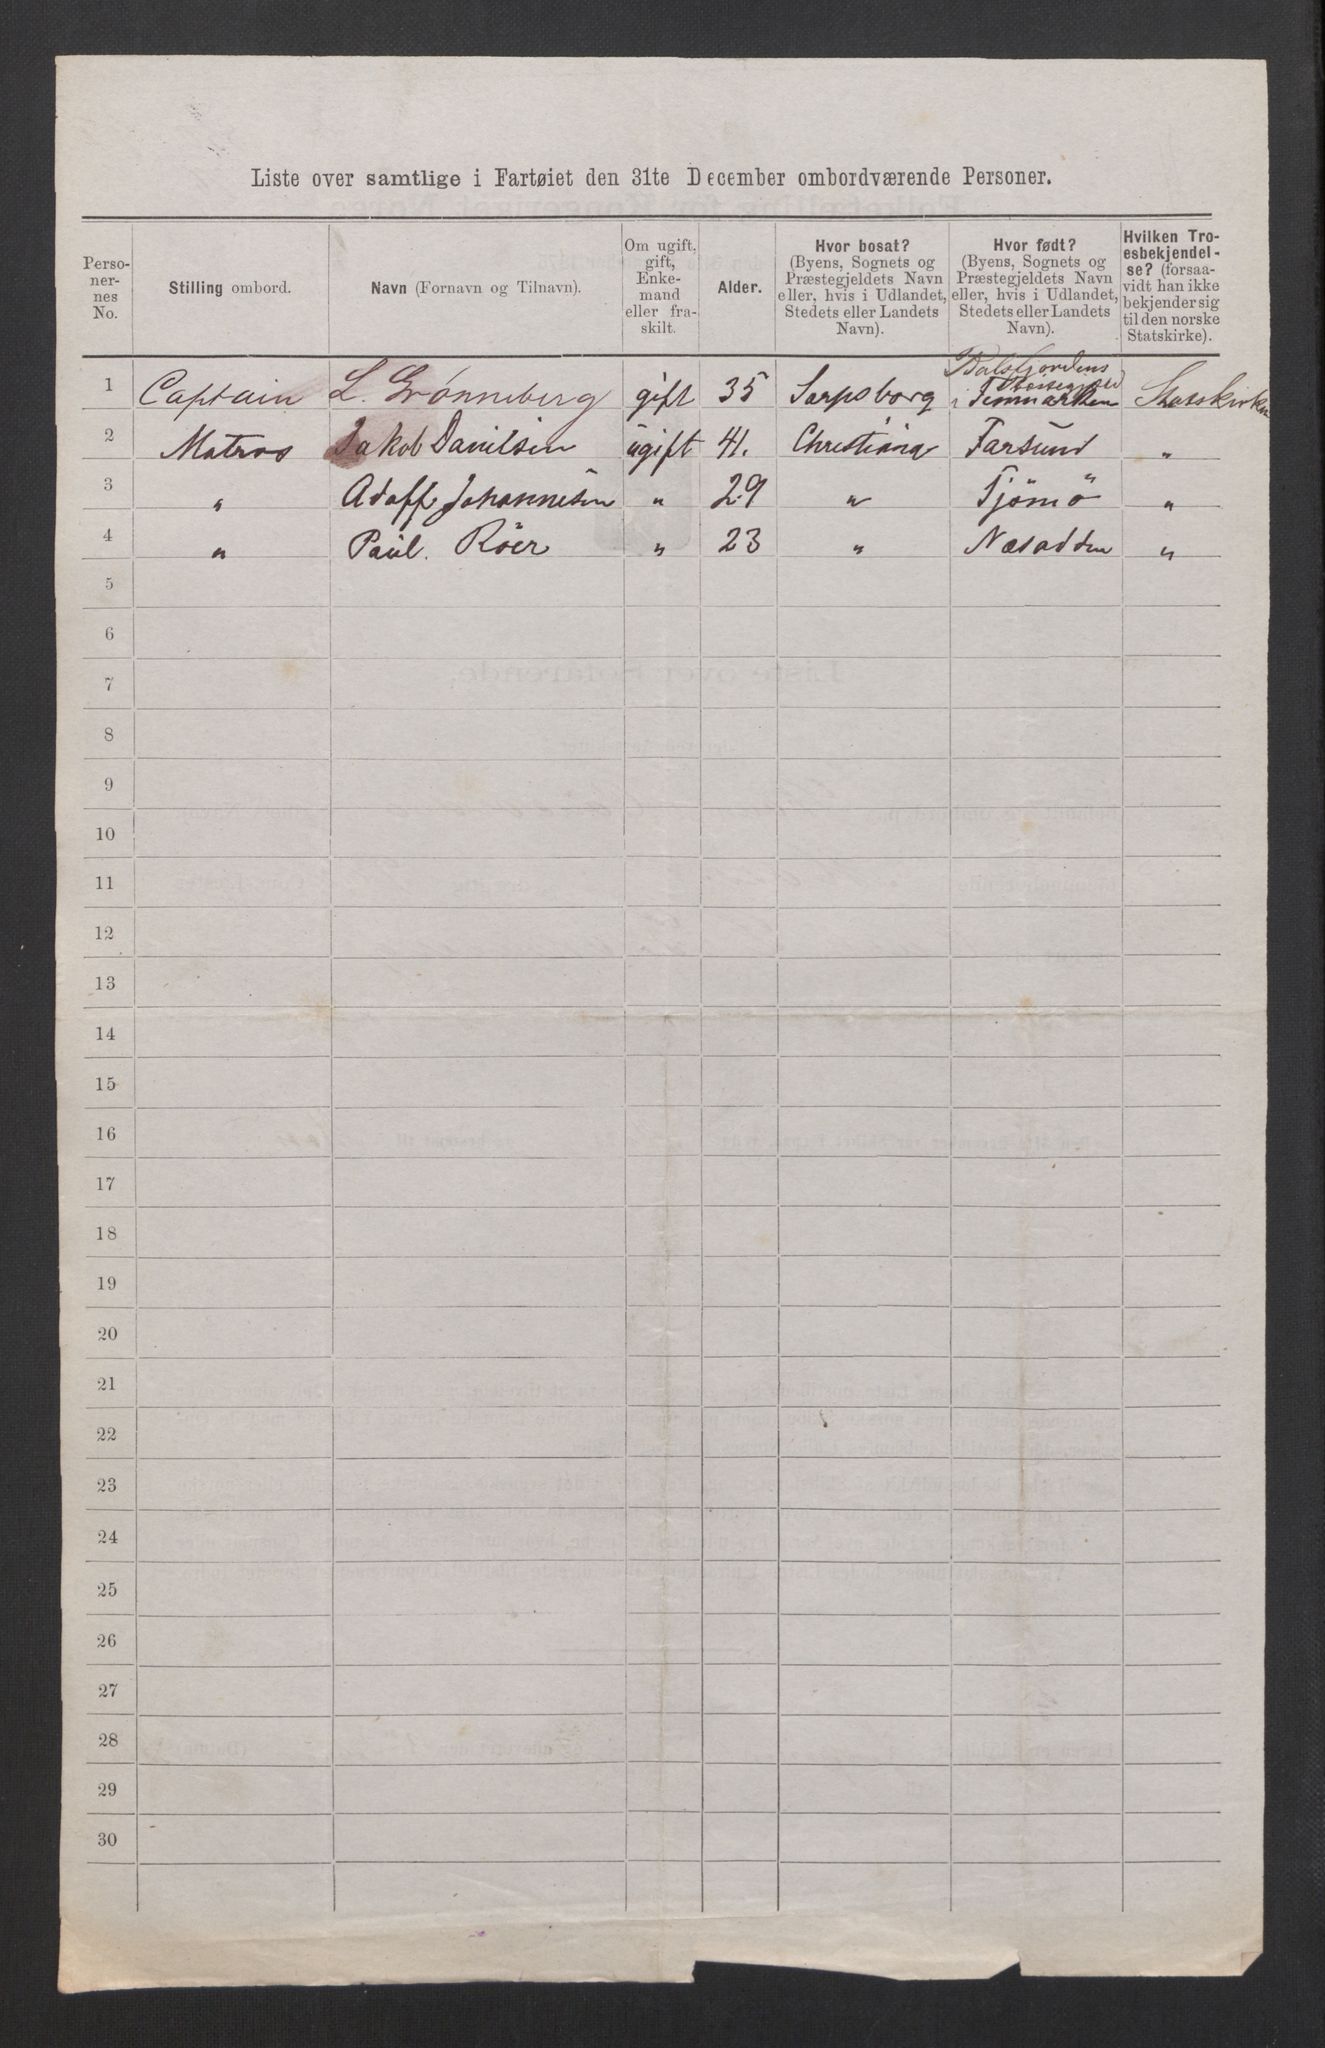 Liste over samtlige i Fartøiet den 31te December ombordværende Personer.
Perso-
ner-
nes
No.
Stilling ombord.
Navn (Fornavn og Tilnavn).
Om ugift,
gift,
Enke-
mand
eller fra-
skilt.
Alder.
Hvor bosat?
(Byens, Sognets og
Præstegjeldets Navn
eller, hvis i Udlandet,
Stedets eller Landets
Navn).
Hvor født?
(Byens, Sognets og
Præstegjeldets Navn
eller, hvis i Udlandet,
Stedets eller Landets
Navn).
Hvilken Tro-
esbekjendel-
se? (forsaa-
vidt han ikke
bekjender sig
til den norske
Statskirke).
Balsfjordens
1 Captain L. Grønneberg gift 35 Sarpsborg i Finmarken Statskirken
2 Matros Jakob Danilsen ugift 41. Christiania Farsund "
3 " Adolf Johannesen " 29 " Tjömö "
4 " Paul. Röer " 23 " Næsodden "
5
6
7
8
9
10
11
12
13
14
15
16
17
18
19
20
21
22
23
24
25
26
27
28
29
30